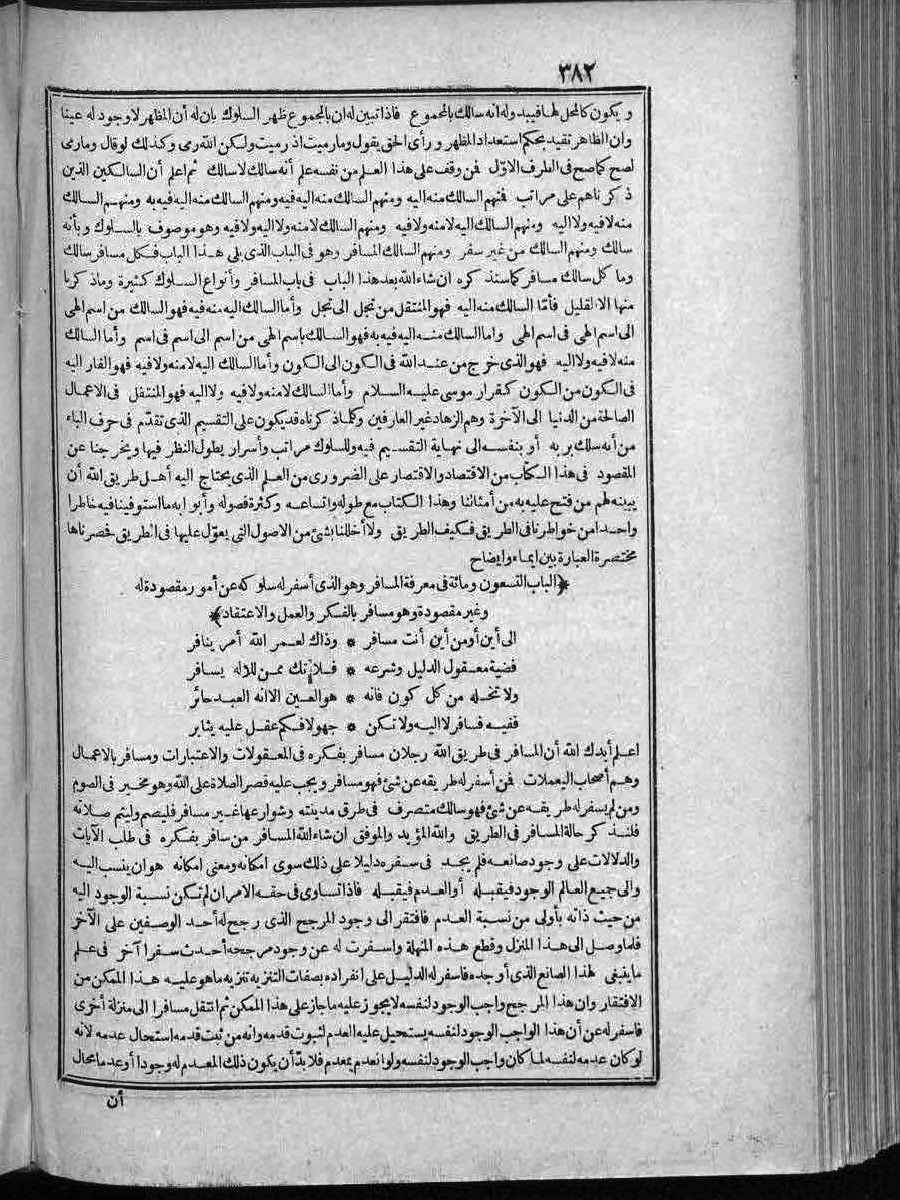 ٣٨٢
ويكون كالمحل لها فيبدو له انه سالك بالمجموع فاذا تبين له ان بالمجموع ظهر السلوك بان له أن المظهر لا وجود له عينا
وان الظاهر تقيد بحكم استعداد المظهر ورأى الحق يقول وما رميت اذ رميت ولكن الله رمى وكذلك لو قال وما رمى
لصح كما صح فى الطرف الاوّل فمن وقف على هذا العلم من نفسه علم أنه سالك لا سالك ثم اعلم أن السالكين الذين
ذكرناهم على مراتب فنهم السالك منه اليه ومنهم السالك منه اليه فيه ومنهم السالك منه اليه فيه به ومنهم السالك
منه لا فيه ولا اليه ومنهم السالك اليه لا منه ولا فيه ومنهم السالك لا منه ولا اليه ولا فيه وهو موصوف بالسلوك وبأنه
سالك ومنهم السالك من غير سفر ومنهم السالك المسافر وهو فى الباب الذى يلى هذا الباب فكل مسافر سالك
وما كل سالك مسافر كما سنذكره ان شاء الله بعد هذا الباب فى باب المسافر وأنواع السلوك كثيرة وما ذكرنا
منها الا القليل فأمّا السالك منه اليه فهو المنتقل من تجل الى تجل وأما السالك اليه منه فيه فهو السالك من اسم الهى
الى اسم الهى فى اسم الهى واما السالك منه اليه فيه به فهو السالك باسم الهى من اسم الى اسم فى اسم وأما السالك
منه لا فيه ولا اليه فهو الذى خرج من عند الله فى الكون الى الكون وأما السالك اليه لا منه ولا فيه فهو الفار اليه
فى الكون من الكون كفرار موسى عليه السلام وأما السالك لا منه ولا فيه ولا اليه فهو المنتقل فى الاعمال
الصالحة من الدنيا الى الآخرة وهم الزهاد غير العارفين وكلما ذكرناه قد يكون على التقسيم الذى تقدّم فى حرف الباء
من أنه سلك بربه أو بنفسه الى نهاية التقسيم فيه وللسلوك مراتب وأسرار يطول النظر فيها ويخرجنا عن
المقصود فى هذا الكتاب من الاقتصاد والاقتصار على الضرورى من العلم الذى يحتاج اليه أهل طريق الله أن
يبينه لهم من فتح عليه به من أمثالنا وهذا الكتاب مع طوله واتساعه وكثرة فصوله وأبوابه ما استوفينا فيه خاطرا
واحدا من خواطرنا فى الطريق فكيف الطريق ولا أخللنا بشئ من الاصول التى يعوّل عليها فى الطريق فحصرناها
مختصرة العبارة بين ايماء وايضاح
﴿الباب التسعون ومائة فى معرفة المسافر وهو الذى أسفر له سلوكه عن أمور مقصودة له
وغير مقصودة وهو مسافر بالفكر والعمل والاعتقاد﴾
الى أين أو من أين أنت مسافر * وذاك لعمر الله أمر ينافر
قضية معقول الدليل وشرعه * فلا تك ممن للاله يسافر
ولا تخله من كل كون فانه * هو العين الا انه العبد حائر
ففيه فسافر لا اليه ولا تكن * جهولا فكم عقل عليه يثابر
اعلم أيدك الله أن المسافر فى طريق الله رجلان مسافر بفكره فى المعقولات والاعتبارات ومسافر بالاعمال
وهم أصحاب اليعملات فمن أسفر له طريقه عن شئ فهو مسافر ويجب عليه قصر الصلاة على الله وهو مخير فى الصوم
ومن لم يسفر له طريقه عن شئ فهو سالك متصرف فى طرق مدينته وشوارعها غير مسافر فليصم وليتم صلاته
فلنذكر حالة المسافر فى الطريق والله المؤيد والموفق ان شاء الله المسافر من سافر بفكره فى طلب الآيات
والدلالات على وجود صانعه فلم يجد فى سفره دليلا على ذلك سوى امكانه ومعنى امكانه هو ان ينسب اليه
والى جميع العالم الوجود فيقبله أو العدم فيقبله فاذا تساوى فى حقه الامران لم تكن نسبة الوجود اليه
من حيث ذاته بأولى من نسبة العدم فافتقر الى وجود المرجح الذى رجح له أحد الوصفين على الآخر
فلما وصل الى هذا المنزل وقطع هذه المنهلة واسفرت له عن وجود مرجحه أحدث سفرا آخر فى علم
ما ينبغى لهذا الصانع الذى أوجده فاسفر له الدليل على انفراده بصفات التنزيه تنزيه ما هو عليه هذا الممكن من
الافتقار وان هذا المرجح واجب الوجود لنفسه لا يجوز عليه ما جاز على هذا الممكن ثم انتقل مسافرا الى منزلة أخرى
فاسفر له عن أن هذا الواجب الوجود لنفسه يستحيل عليه العدم لثبوت قدمه وانه من ثبت قدمه استحال عدمه لانه
لو كان عدمه لنفسه لما كان واجب الوجود لنفسه ولو انعدم بمعدم فلا بدّ أن يكون ذلك المعدم له وجودا أو عدما محال
أن